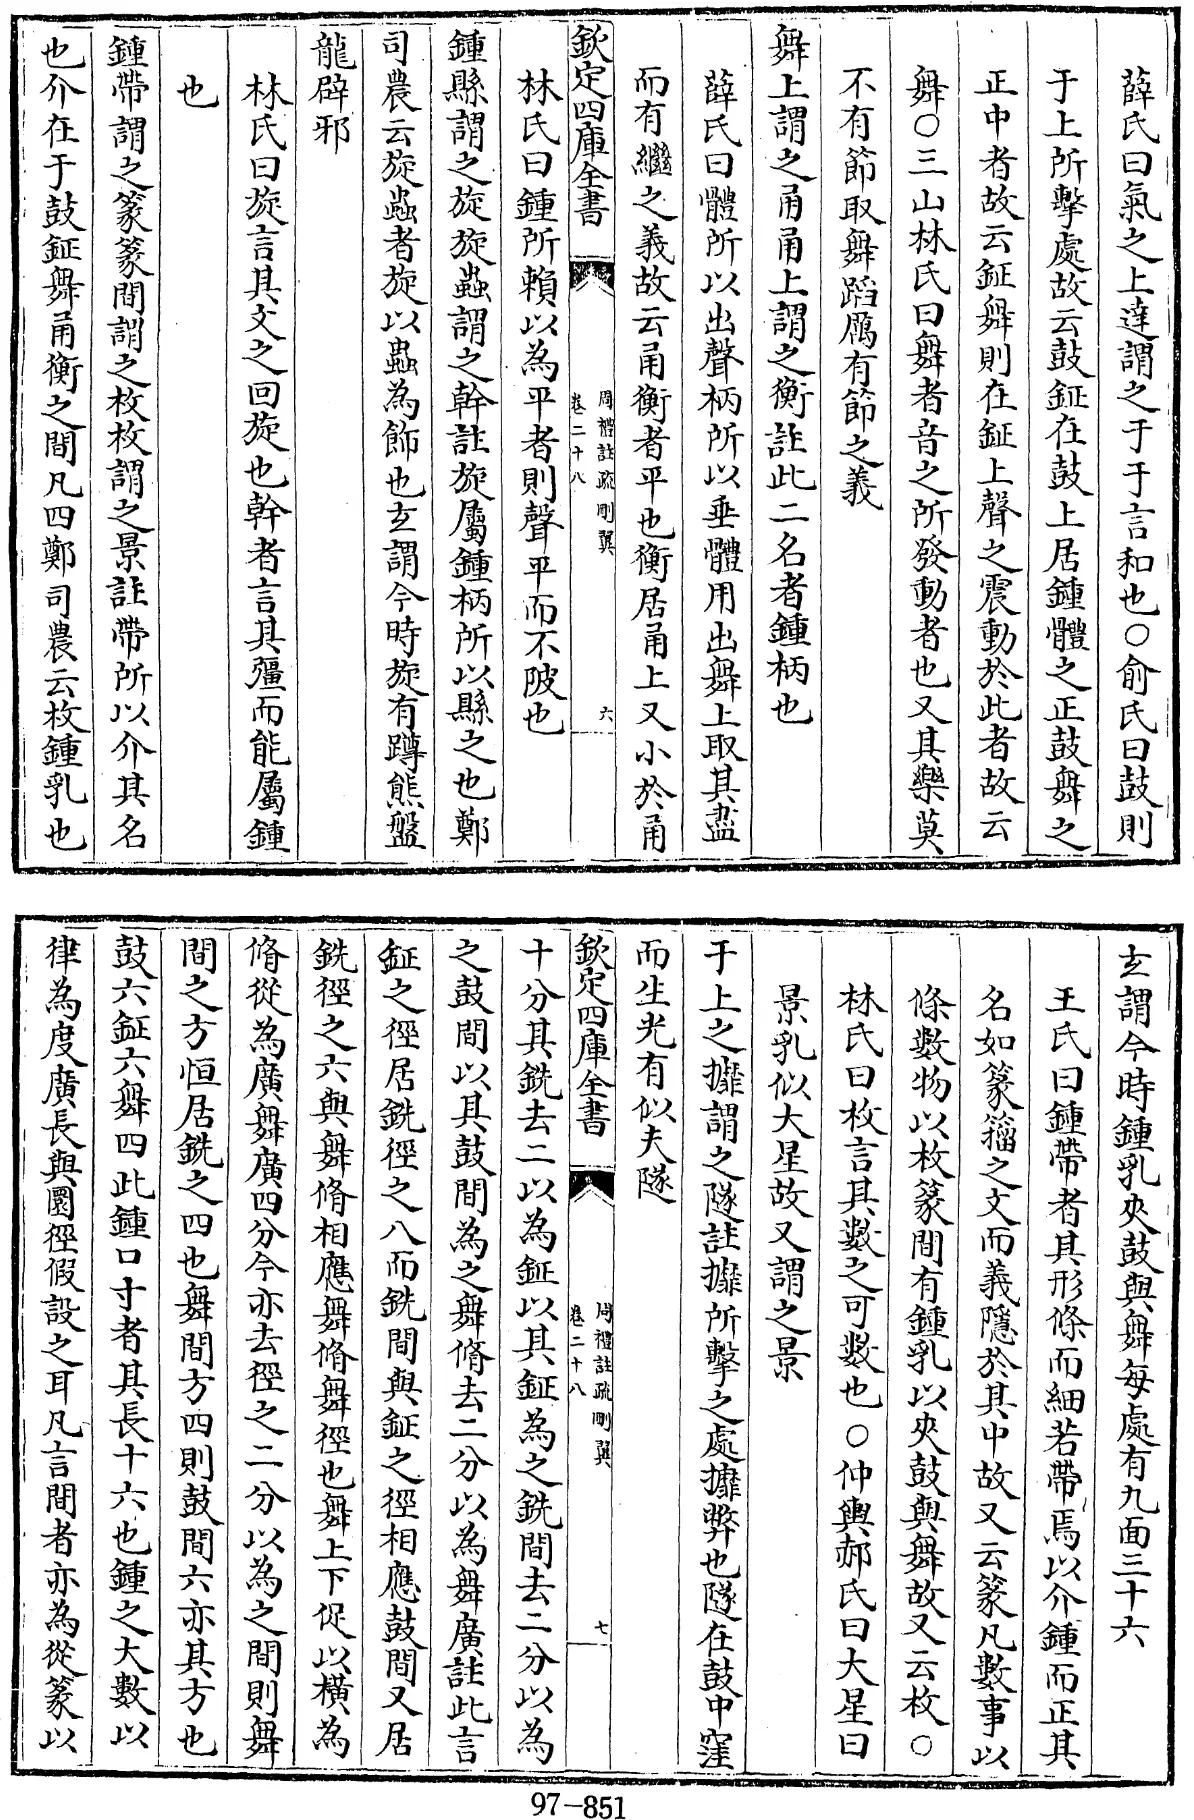 薛氏曰氣之上達謂之于于言和也○俞氏曰鼓則
于上所擊處故云鼓鉦在鼓上居鍾體之正鼓舞之
正中者故云鉦舞則在鉦上聲之震動於此者故云
舞○三山林氏曰舞者音之所發動者也又其樂莫
不有節取舞蹈厲有節之義
舞上謂之甬甬上謂之衡註此二名者鍾柄也
薛氏曰體所以出聲柄所以垂體用出舞上取其盡
而有繼之義故云甬衡者平也衡居甬上又小於甬
欽定四庫全書
周禮註疏刪翼
卷二十八
六
林氏曰鍾所賴以為平者則聲平而不陂也
鍾縣謂之旋旋蟲謂之幹註旋屬鍾柄所以縣之也鄭
司農云旋蟲者旋以蟲為飾也玄謂今時旋有蹲熊盤
龍辟邪
林氏曰旋言其文之回旋也幹者言其彊而能屬鍾
也
鍾帶謂之篆篆間謂之枚枚謂之景註帶所以介其名
也介在于鼓鉦舞甬衡之間凡四鄭司農云枚鍾乳也
玄謂今時鍾乳夾鼓與舞每處有九面三十六
王氏曰鍾帶者其形條而細若帶焉以介鍾而正其
名如篆籀之文而義隱於其中故又云篆凡數事以
條數物以枚篆間有鍾乳以夾鼓與舞故又云枚○
林氏曰枚言其數之可數也○仲輿郝氏曰大星曰
景乳似大星故又謂之景
于上之攠謂之隧註攠所擊之處攠弊也隧在鼓中窪
而生光有似夫隧
欽定四庫全書
周禮註疏刪翼
卷二十八
七
十分其銑去二以為鉦以其鉦為之銑間去二分以為
之鼓間以其鼓間為之舞脩去二分以為舞廣註此言
鉦之徑居銑徑之八而銑間與鉦之徑相應鼓間又居
銑徑之六與舞脩相應舞脩舞徑也舞上下促以橫為
脩從為廣舞廣四分今亦去徑之二分以為之間則舞
間之方恒居銑之四也舞間方四則鼓間六亦其方也
鼓六鉦六舞四此鍾口寸者其長十六也鍾之大數以
律為度廣長與圜徑假設之耳凡言間者亦為從篆以
97-851